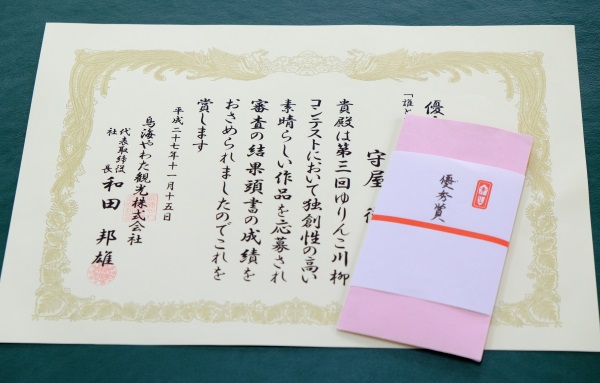 優
「誰と
守屋
貴殿は第三回ゆりんこ川柳
コンテストにおいて独創性の高い
素晴らしい作品を応募され
審査の結果頭書の成績を
おさめられましたのでこれを
賞します
平成二十七年十一月十五日
鳥海やわた観光株式会社
代表取締役
社長
和田邦雄
優秀賞